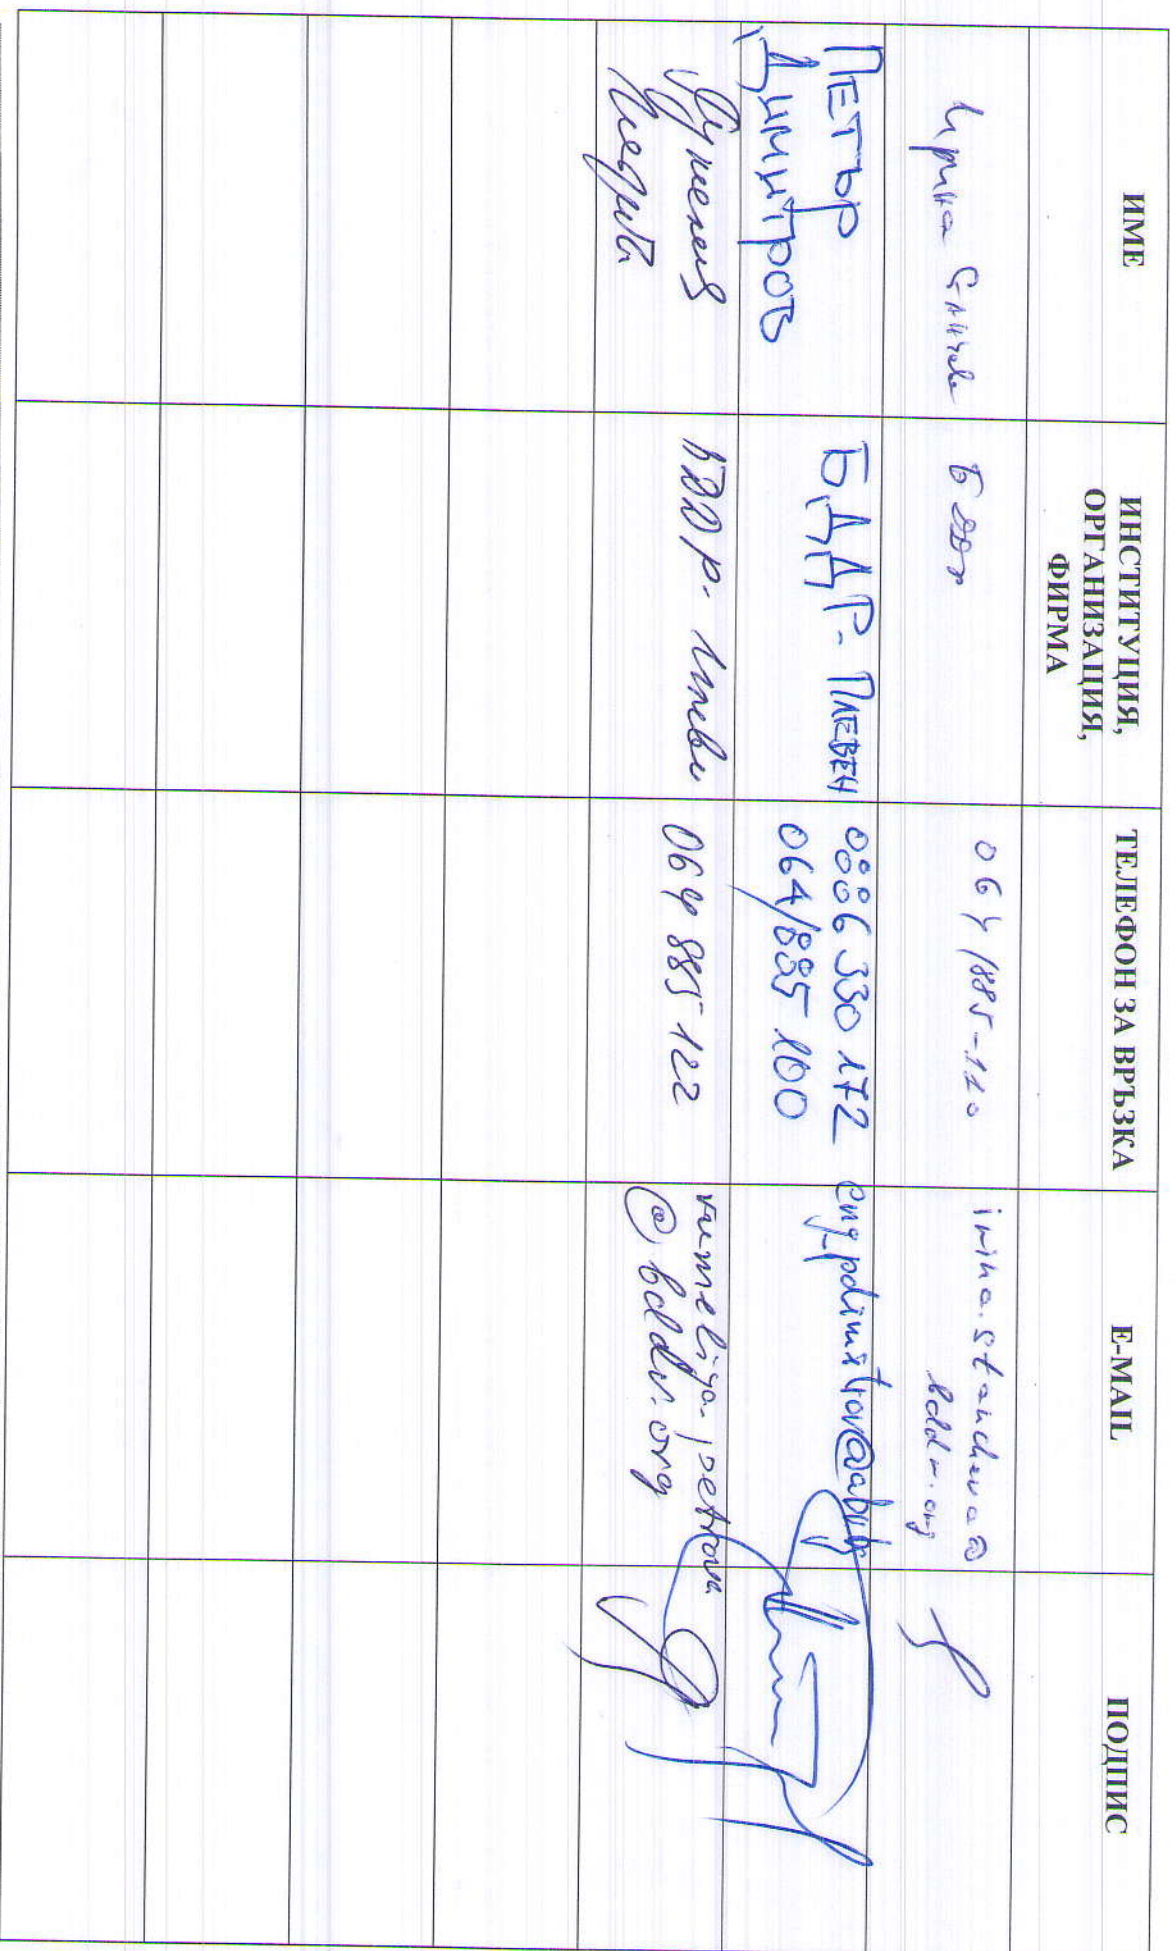 ИМЕ
ИНСТИТУЦИЯ,
ОРГАНИЗАЦИЯ,
ФИРМА
ТЕЛЕФОН ЗА ВРЪЗКА
E-MAIL
ПОДПИС
Ирина Станчева
БДДР
064/885-110
irina.stancheva@
bddr.org
ПЕТЪР
ДИМИТРОВ
БДДР - ПЛЕВЕН
0886 330 172
064/885 100
eng_pdimitrov@abv.b
Румелия
БДДР - Плевен
064 885 122
rumeliya.petrova
@bddr.org